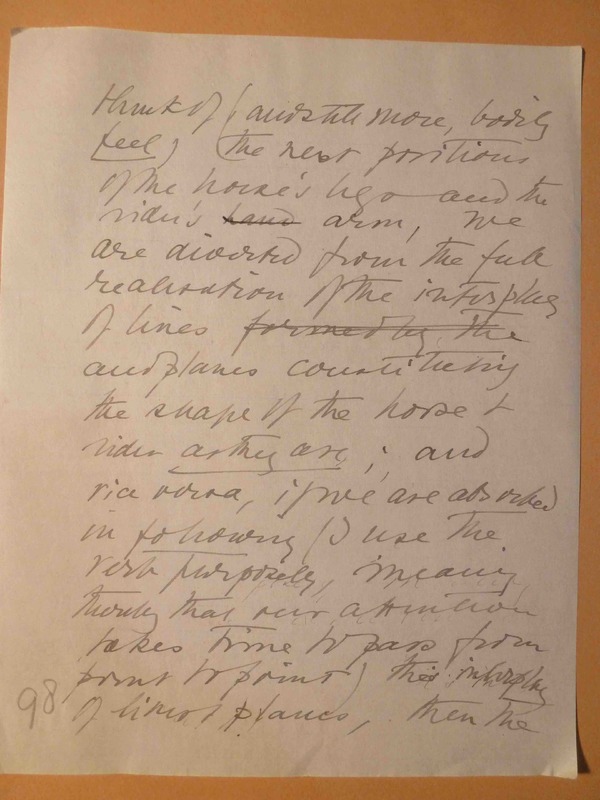 think of (and still more, bodily
feel) the next positions
of the horse's legs and the
rider's hand arm, we
are diverted from the full
realisation of the interplay
of lines formed by the
and planes constituting
the shape of the horse &
rider as they are; and
vice versa, if we are absorbed
in following (I use the
verb purposely, meaning
thereby that our attention
takes time to pass from
point to point) this interplay
of lines & planes, then the
98